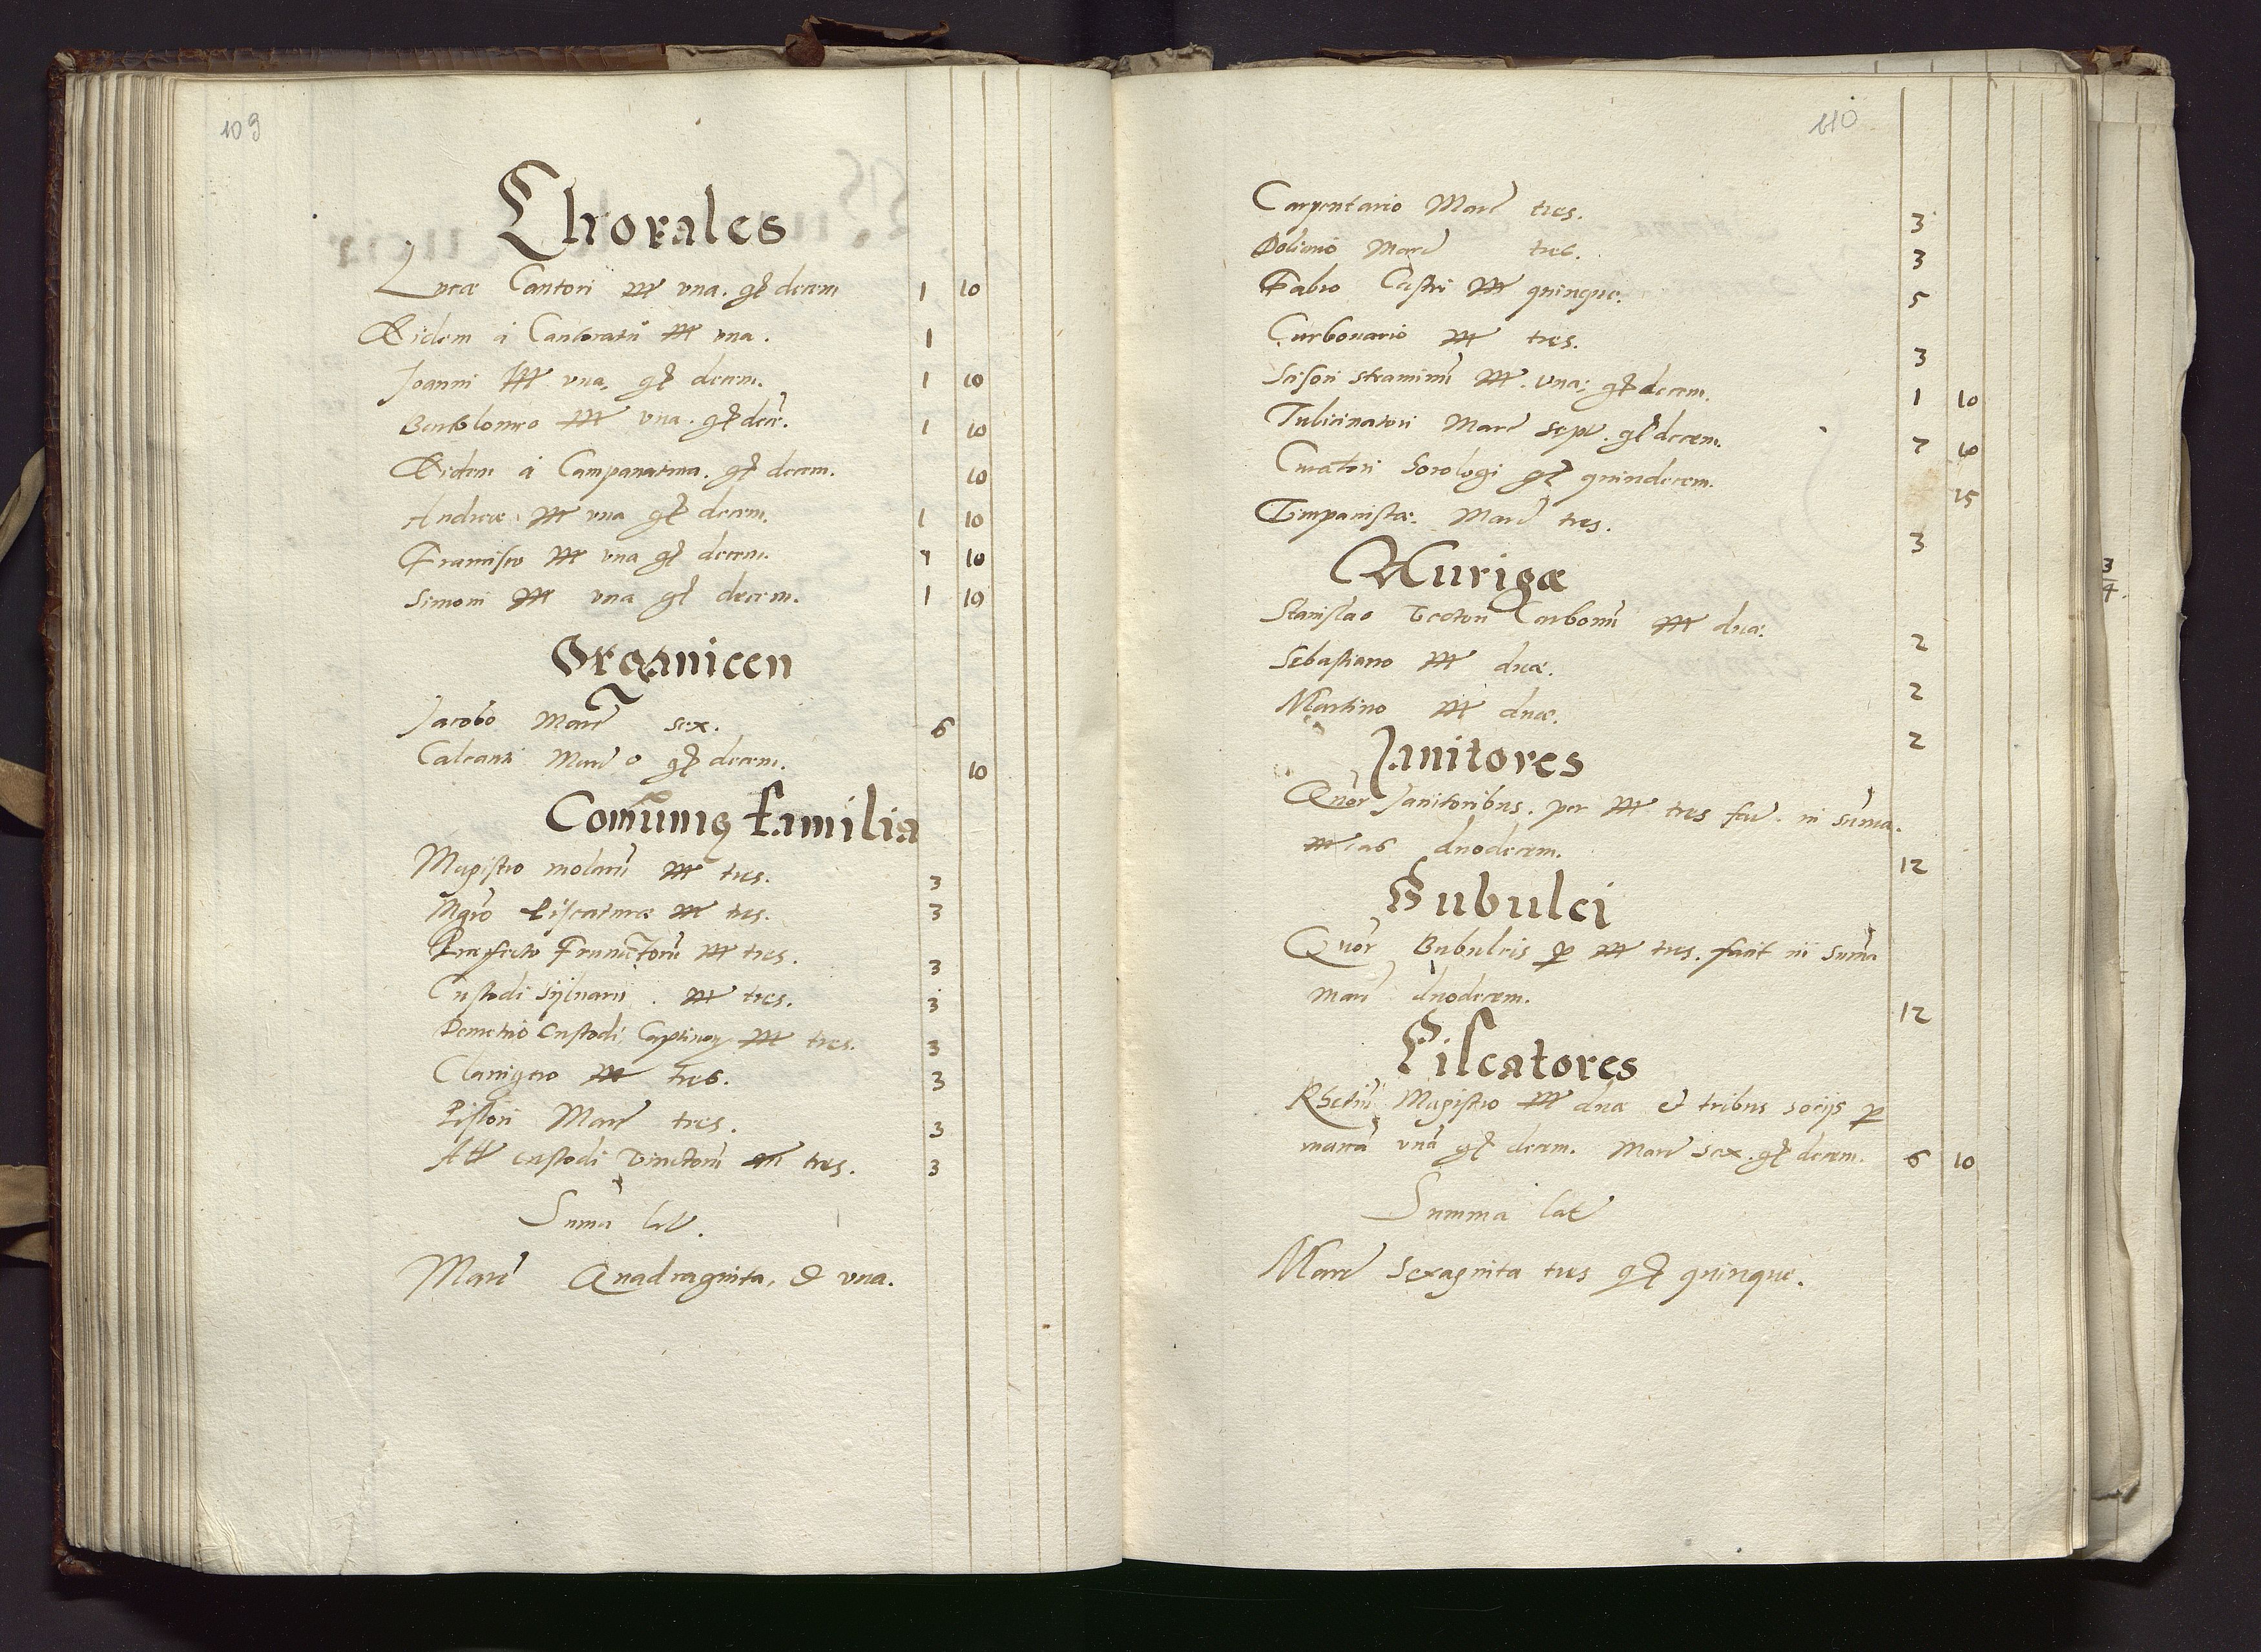 109
Chorales
Lucæ Cantori M una. gr decem 1 10
Eidem à Cantoratu M una. 1
Joanni M una, gr decem. 1 10
Bartolomeo M una. gr dece. 1 10
Eidem à Campanatura. gr decem. 10
Andreæ M una gr decem. 1 10
Francisco M una gr decem. 1 10
Simoni M una gr decem. 1 10
Organicen
Jacobo Marc sex. 6
Calcanti Marc o gr decem. 10
Comunis familia
Magistro molarū M tres. 3
Mgrō Piscaturæ M tres. 3
Præfecto Frumētorū M tres. 3
Custodi Sÿlvarū. M tres. 3
Demetrio Custodi Captivor M tres. 3
Clavigero M tres. 3
Pistori Marc tres. 3
custodi tres. 3
Sumā lat.
Marc Quadraginta, & una.
110
Carpentario Marc tres. 3
Doliario Marc tres. 3
Fabro Castri M quinque. 5
Carbonario M tres. 3
Scisori straminū M. Una; gr decem. 1 10
Tubicinatori Marc sept. gr decem. 7 10
Curatori horologi gr quindecem. 15
Timpanistæ. Marc tres. 3
Aurigæ
Stanislao Vectori Carbonū M duæ. 2
Sebastiano M duæ. 2
Martino M duæ. 2
Janitores
Quor Janitoribus. per M tres fac. in sūma.
Mcas duodecem. 12
Bubulci
Quor Bubulcis p M tres. facit in Sumā
marc duodecem. 12
Piscatores
Rhetiū Magistro M duæ et tribus socijs p
marcā unā gr decem. Marc sex. gr decem. 6 10
Summa lat
Marc Sexaginta tres gr quinque.
3
4